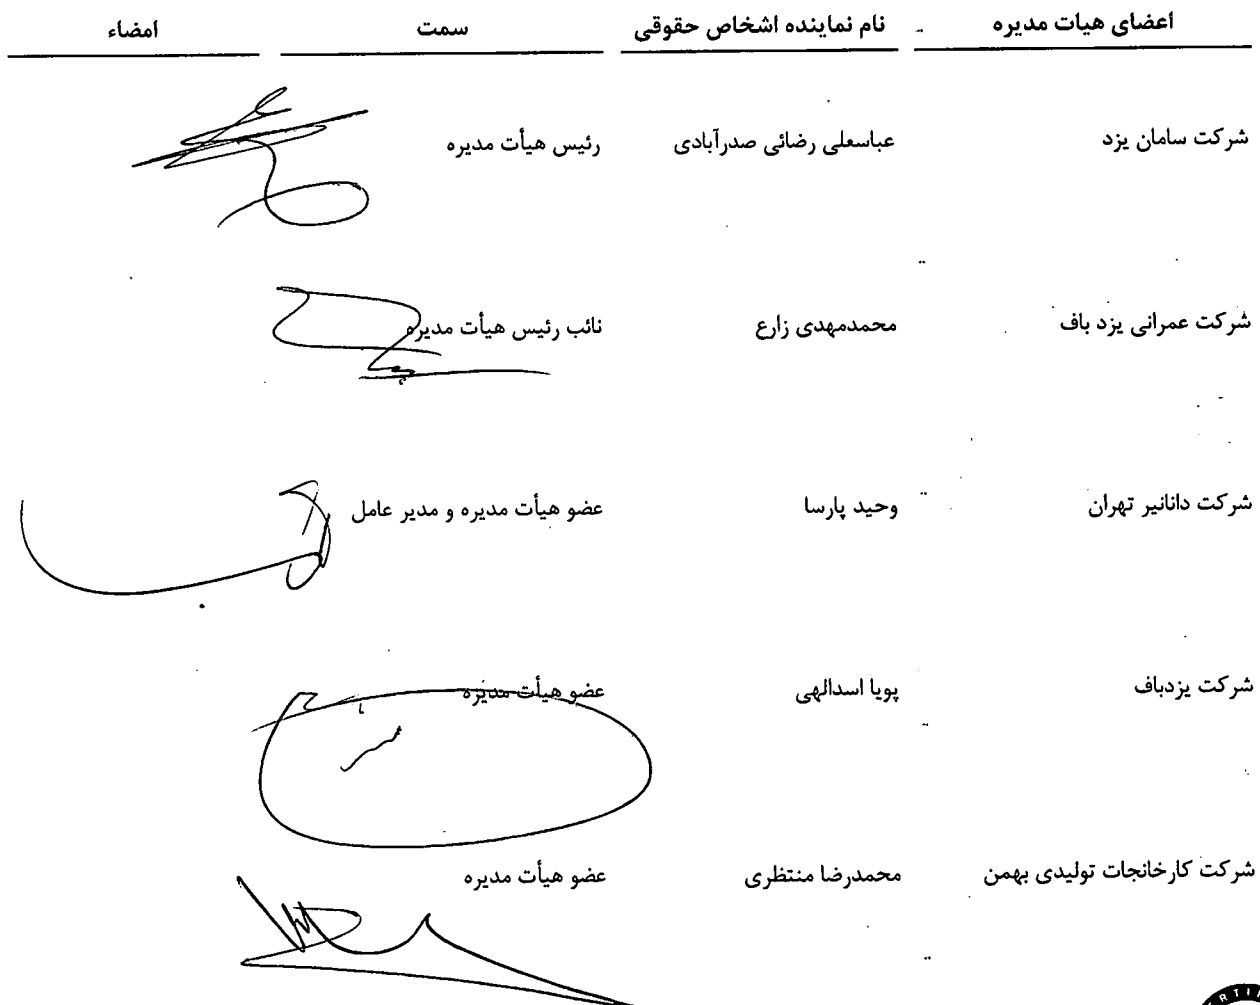 اعضای هیات مدیره نام نماینده اشخاص حقوقی سمت امضاء
شرکت سامان یزد عباسعلی رضائی صدرآبادی رئیس هیأت مدیره
شرکت عمرانی یزد باف محمدمهدی زارع نائب رئیس هیأت مدیره
شرکت دانانیر تهران وحید پارسا عضو هیأت مدیره و مدیر عامل
شرکت یزدباف پویا اسدالهی عضو هیأت مدیره
شرکت کارخانجات تولیدی بهمن محمدرضا منتظری عضو هیأت مدیره